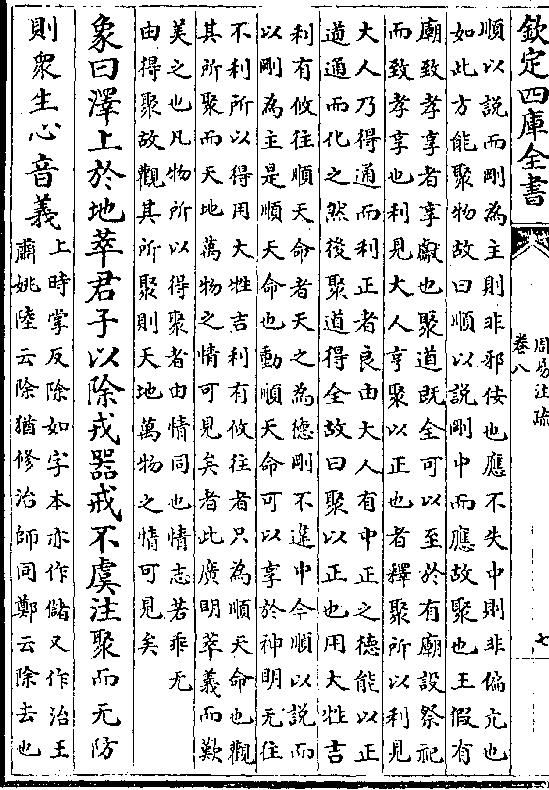 欽定四庫全書
周易注疏
卷八
七
順以說而剛為主則非邪佞也應不失中則非偏亢也
如此方能聚物故曰順以說剛中而應故聚也王假有
廟致孝享者享獻也聚道既全可以至於有廟設祭祀
而致孝享也利見大人亨聚以正也者釋聚所以利見
大人乃得通而利正者良由大人有中正之德能以正
道通而化之然後聚道得全故曰聚以正也用大牲吉
利有攸往順天命者天之為德剛不違中今順以說而
以剛為主是順天命也動順天命可以享於神明无往
不利所以得用大牲吉利有攸往者只為順天命也觀
其所聚而天地萬物之情可見矣者此廣明萃義而歎
美之也凡物所以得聚者由情同也情志若乖无
由得聚故觀其所聚則天地萬物之情可見矣
象曰澤上於地萃君子以除戎器戒不虞注聚而无防
則衆生心音義
上時掌反除如字本亦作儲又作治王
肅姚陸云除猶修治師同鄭云除去也